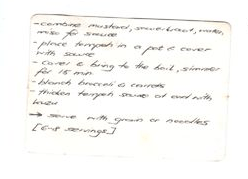 - combine mustard, sauerkraut, water,
miso for sauce
- place tempeh in a pot & cover
with sauce
- cover & bring to the boil, simmer
for 15 min
- blanch broccoli & carrots
- thicken tempeh sauce at end with
kuzu
→ serve with grain or noodles
[6-8 servings]